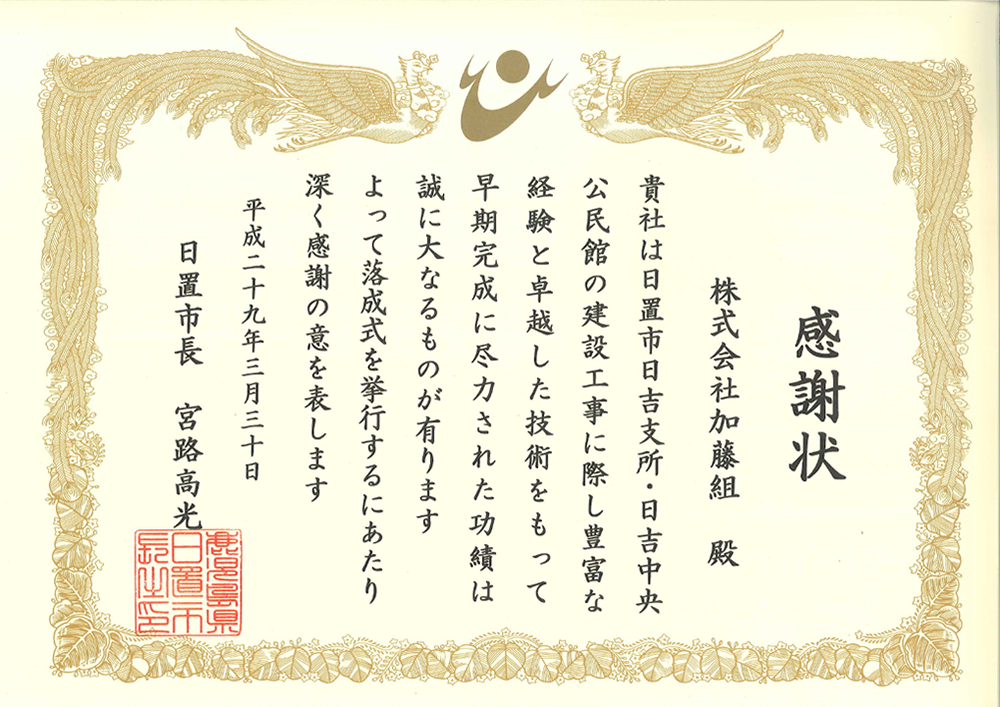 感謝状
株式会社加藤組 殿
貴社は日置市日吉支所・日吉中央
公民館の建設工事に際し豊富な
経験と卓越した技術をもって
早期完成に尽力された功績は
誠に大なるものが有ります
よって落成式を挙行するにあたり
深く感謝の意を表します
平成二十九年三月三十日
日置市長 宮路高光
鹿児島県
日置市
長之印